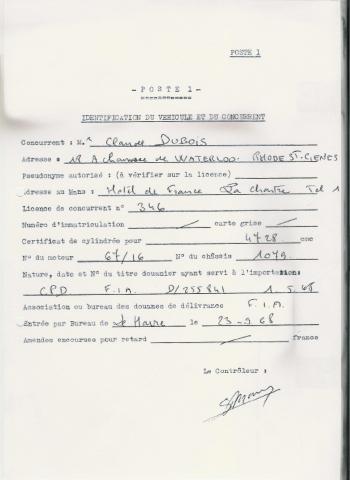 POSTE 1
- POSTE 1 -
IDENTIFICATION DU VEHICULE ET DU CONCURRENT
Concurrent : M. Claude DUBOIS
Adresse : 18 A chaussée de WATERLOO. RHODE ST. GENESE
Pseudonyme autorisé : (à vérifier sur la licence)
Adresse au Mans : Hotel de France La chartre Tel 1
Licence de concurrent n° 346
Numéro d'immatriculation / carte grise /
Certificat de cylindrée pour 4728 cmc
N° du moteur 67/16 N° du châssis 1079
Nature, date et N° du titre douanier ayant servi à l'importation:
CPD F.I.A. D/255841 1.5.68
Association ou bureau des douanes de délivrance F.I.A.
Entrée par Bureau de Le Havre le 23-9-68
Amendes encourues pour retard / francs
Le Contrôleur :